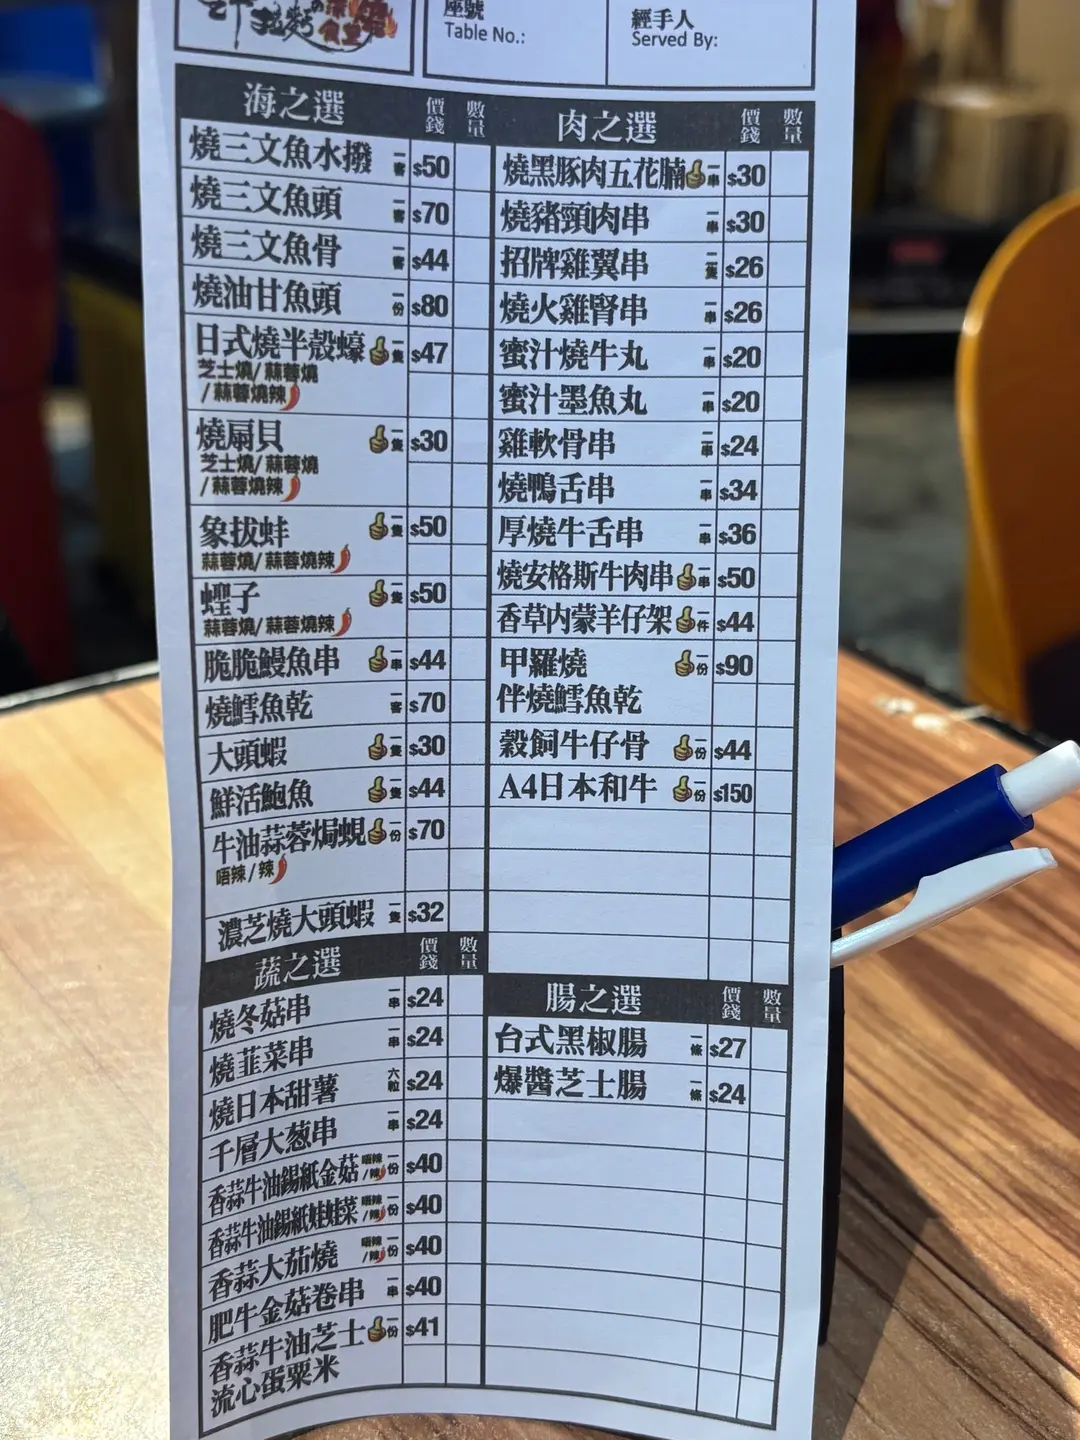 座號
Table No.:
經手人
Served By:
海之選 價錢 數量
燒三文魚水撥 一客 $50
燒三文魚頭 一客 $70
燒三文魚骨 一客 $44
燒油甘魚頭 一份 $80
日式燒半殼蠔 一隻 $47
芝士燒/蒜蓉燒
/蒜蓉燒辣
燒扇貝 一隻 $30
芝士燒/蒜蓉燒
/蒜蓉燒辣
象拔蚌 一隻 $50
蒜蓉燒/蒜蓉燒辣
蟶子 一隻 $50
蒜蓉燒/蒜蓉燒辣
脆脆鰻魚串 一串 $44
燒鱈魚乾 一客 $70
大頭蝦 一隻 $30
鮮活鮑魚 一隻 $44
牛油蒜蓉焗蜆 一份 $70
唔辣/辣
濃芝燒大頭蝦 一隻 $32
蔬之選 價錢 數量
燒冬菇串 一串 $24
燒韮菜串 一串 $24
燒日本甜薯 六粒 $24
千層大葱串 一串 $24
香蒜牛油錫紙金菇 唔辣/辣 一份 $40
香蒜牛油錫紙娃娃菜 唔辣/辣 一份 $40
香蒜大茄燒 唔辣/辣 一份 $40
肥牛金菇卷串 一串 $40
香蒜牛油芝士 一份 $41
流心蛋粟米
肉之選 價錢 數量
燒黑豚肉五花腩 一串 $30
燒豬頸肉串 一串 $30
招牌雞翼串 二隻 $26
燒火雞腎串 一串 $26
蜜汁燒牛丸 一串 $20
蜜汁墨魚丸 一串 $20
雞軟骨串 二串 $24
燒鴨舌串 一串 $34
厚燒牛舌串 一串 $36
燒安格斯牛肉串 一串 $50
香草內蒙羊仔架 一件 $44
甲羅燒 一份 $90
伴燒鱈魚乾
穀飼牛仔骨 一份 $44
A4日本和牛 一份 $150
腸之選 價錢 數量
台式黑椒腸 一條 $27
爆醬芝士腸 一條 $24